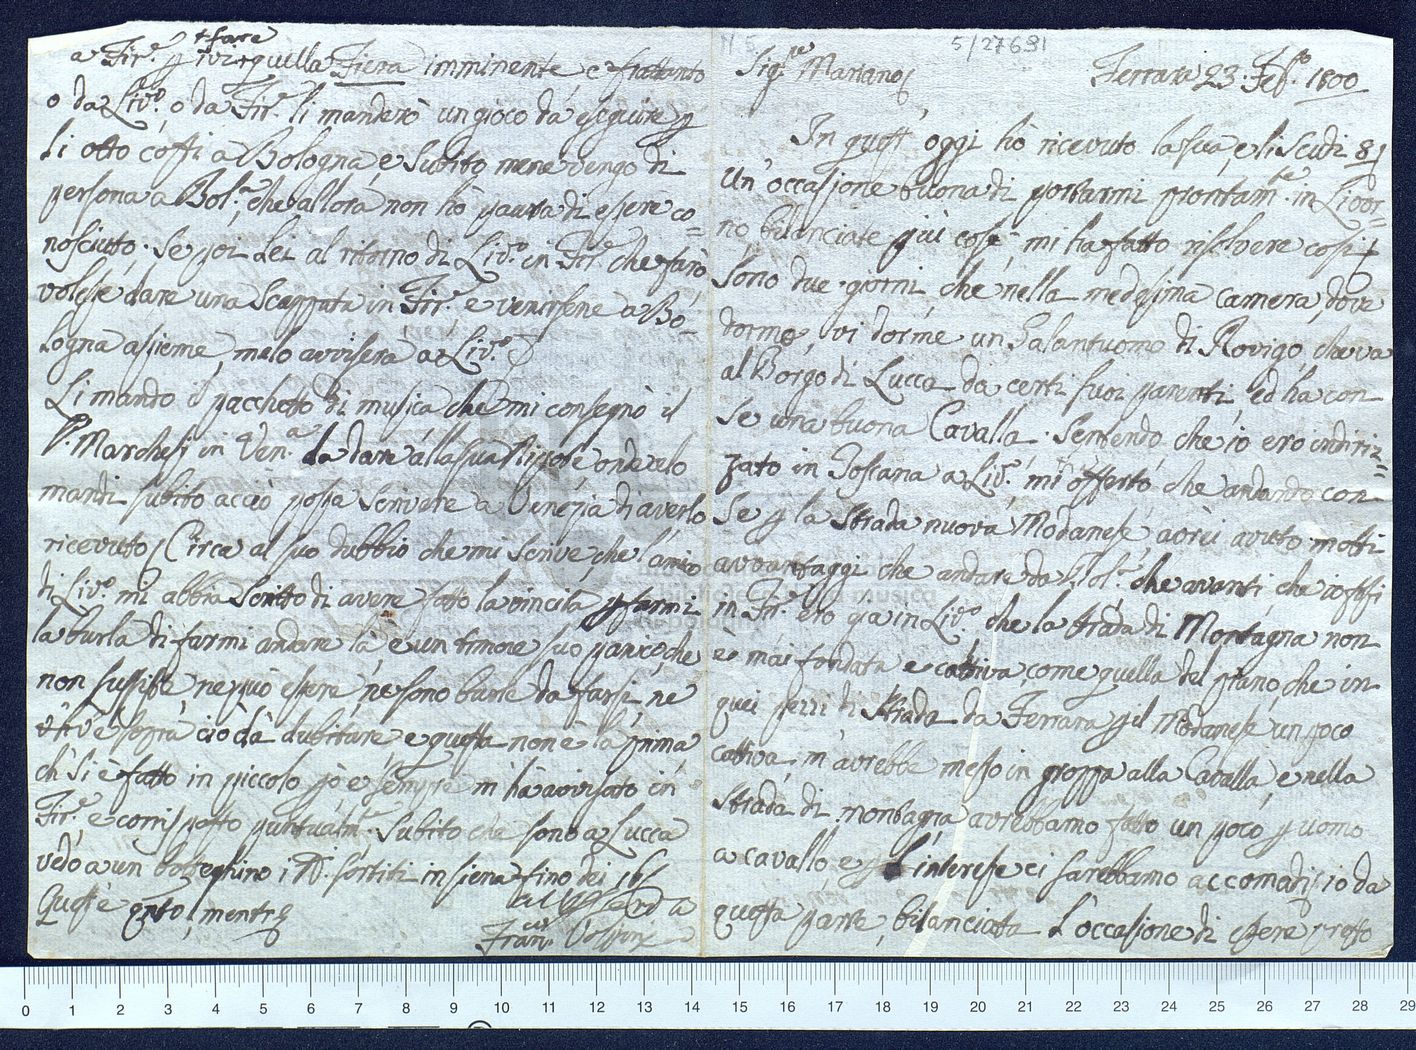 Sig.re Mariano
5/27691
Ferrara 23. Feb.o 1800
In quest' oggi hò ricevuto la sua, e li scudi 8
Un' occasione buona di portarmi prontam.te in Livor=
no bilanciate più cose, mi ha fatto risolvere così
Sono due giorni che nella medesima camera, dove
dormo, vi dorme un Galantuomo di Rovigo, che va
al Borgo di Lucca da certi suoi parenti, ed ha con
se una buona Cavalla. Sentendo che io ero indiriz=
zato in Toscana a Liv.o, mi offertò che andando con
Se p la strada nuova Modanese, avrei avuto molti
avvantaggi che andare da Bol.a che avanti, che io fossi
in Fir.e ero già in Liv.o, che la strada di Montagna non
è mai fondata e cattiva come quella del piano, che in
quei pezzi di strada da Ferrara p il Modanese un poco
cattiva, m'avrebbe messo in groppa alla Cavalla, e nella
strada di montagna avrebbamo fatto un poco p uomo
a cavallo, e p l'interesse ci sarebbamo accomodati; io da
questa parte, bilanciata l'occasione di essere presto
a Fir.e p ivi quella Fiera imminente e frattanto
o da Liv.o, o da Fir.e li manderò un gioco da eseguire p
li otto cossi a Bologna, e subito mene vengo di
persona a Bol.a, che allora non hò paura di essere co=
nosciuto. Se poi Lei al ritorno di Liv.o in Fir.e che farò
volesse dare una scappata in Fir.e e venirsene a Bo=
logna assieme, melo avviserà a Liv.o
Li mando il pacchetto di musica che mi consegnò il
P. Marchesi in Ven.a da dare alla sua Nipote onde celo
mandi subito acciò possa scrivere a Venezia di averlo
ricevuto. Circa al suo dubbio che mi scrive, che l'amico
di Liv.o mi abbia scritto di avere fatto la vincita, p farmi
la burla di farmi andare là, è un timore suo panico, che
non sussiste, ne può essere, ne sono burle da farsi, ne
v'è sopra ciò da dubitare, e questa non è la prima
ch' si è fatto in piccolo, però e sempre m'hà avvisato in
Fir.e, e corrisposto puntualm.te. Subito che sono a Lucca
vedo a un botteghino i N. sortiti in Siena fino dei 16
Quest' è q.to, mentre
Fran.co